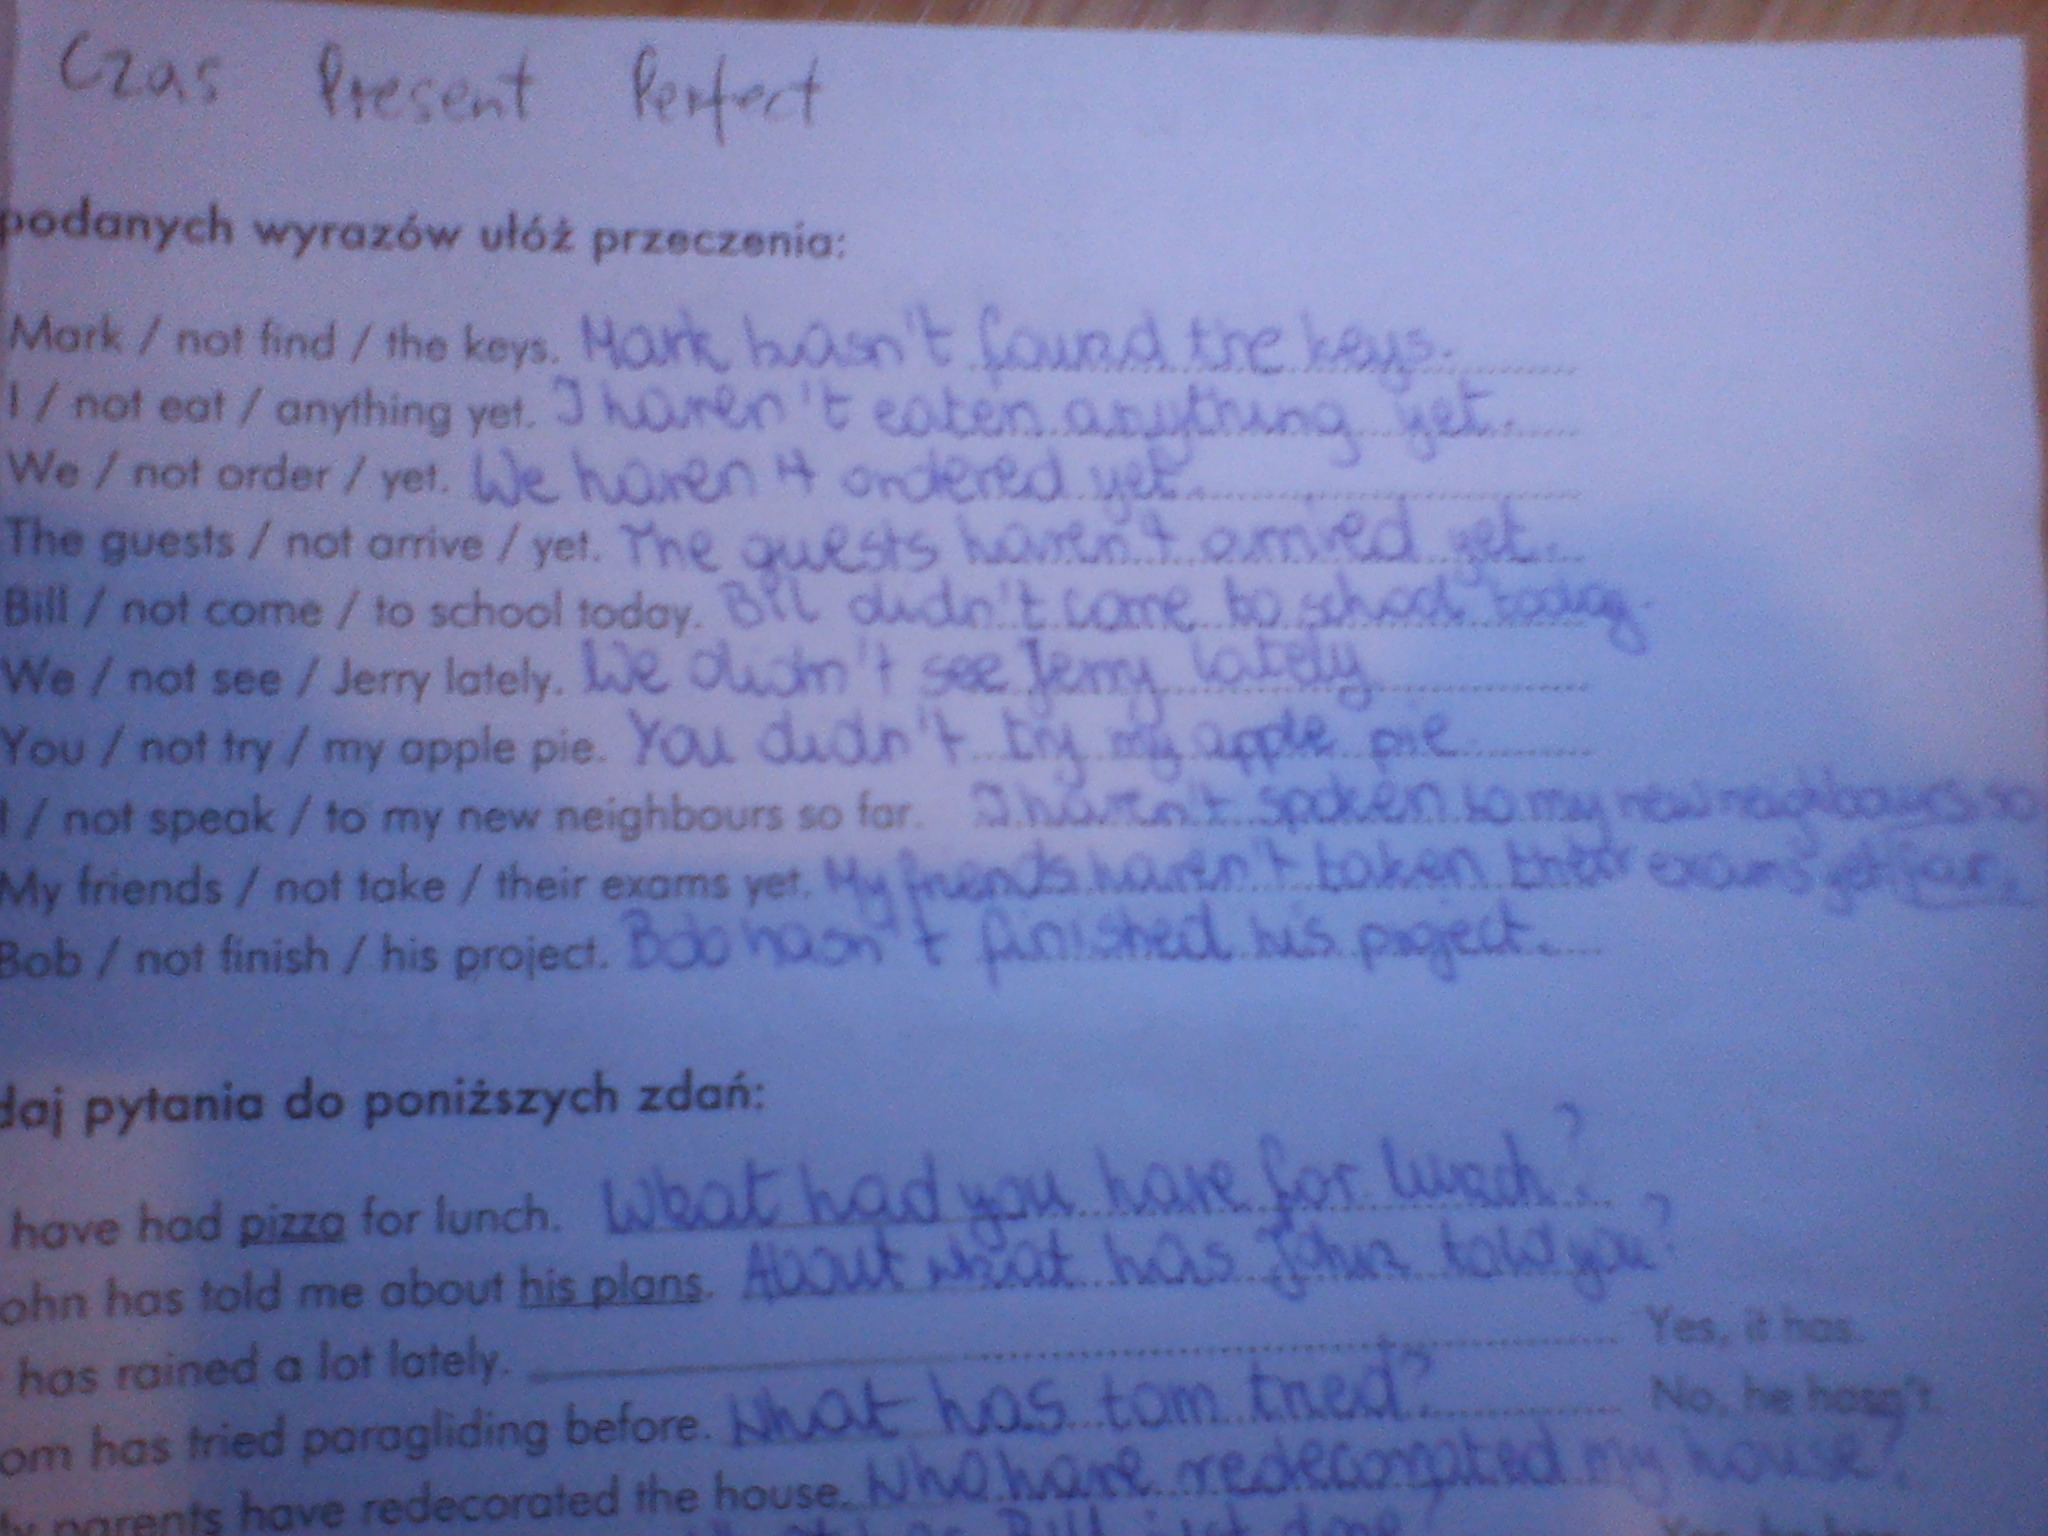 Czas Present Perfect
podanych wyrazów ułóż przeczenia:
Mark / not find / the keys. Mark hasn't found the keys.
I / not eat / anything yet. I haven't eaten anything yet.
We / not order / yet. We haven't ordered yet.
The guests / not arrive / yet. The guests haven't arrived yet.
Bill / not come / to school today. Bill didn't come to school today.
We / not see / Jerry lately. We didn't see Jerry lately
You / not try / my apple pie. You didn't try my apple pie.
I / not speak / to my new neighbours so far. I haven't spoken to my new neighbours so
My friends / not take / their exams yet. My friends haven't taken their exams yet far.
Bob / not finish / his project. Bob hasn't finished his project.
daj pytania do poniższych zdań:
have had pizza for lunch. What had you have for lunch?
ohn has told me about his plans. About what has John told you?
has rained a lot lately. Yes, it has.
om has tried paragliding before. What has tom tried? No, he hasn't.
ly parents have redecorated the house. Who have redecorated my house?
Bill just done?